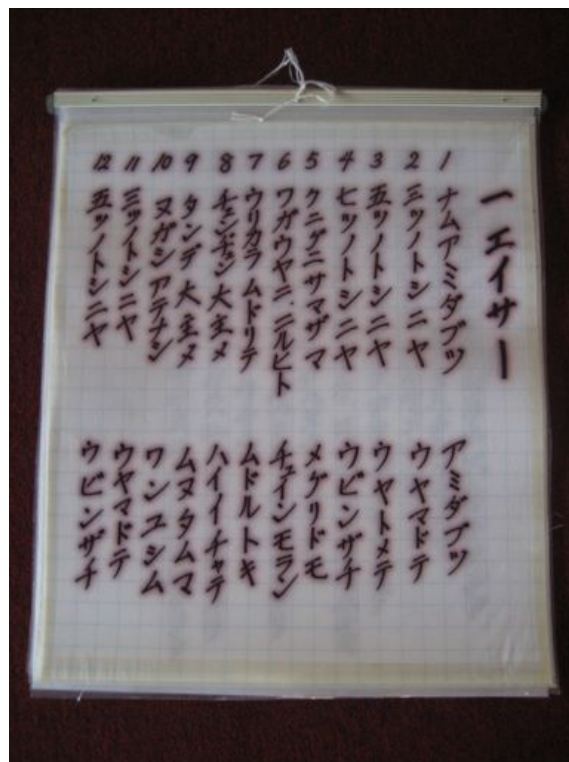 一 エイサー
1 ナムアミダブツ アミダブツ
2 三ツノトシニヤ ウヤマドテ
3 五ツノトシニヤ ウヤトメテ
4 七ツノトシニヤ ウビンザチ
5 クニグニサマザマ メグリドモ
6 ワガウヤニ、ニルヒト チュインモラン
7 ウリカラムドリテ ムドルトキ
8 チョンチョン大主メ ハイイチャテ
9 タンデ大主メ ムヌタムマ
10 ヌガシアテナシ ワンユシム
11 三ツノトシニヤ ウヤマドテ
12 五ツノトシニヤ ウビンザチ